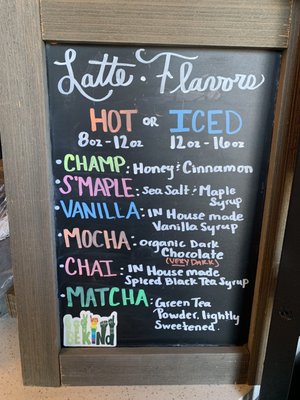 Latte • Flavors
HOT or ICED
8oz - 12oz 12oz - 16oz
• CHAMP: Honey & Cinnamon
• S'MAPLE: Sea Salt & Maple
Syrup
• VANILLA: IN House made
Vanilla Syrup
• MOCHA: organic Dark
Chocolate
(VERY DARK)
• CHAI: IN House made
Spiced Black Tea Syrup
• MATCHA: Green Tea
Powder, lightly
Sweetened.
BE KIND